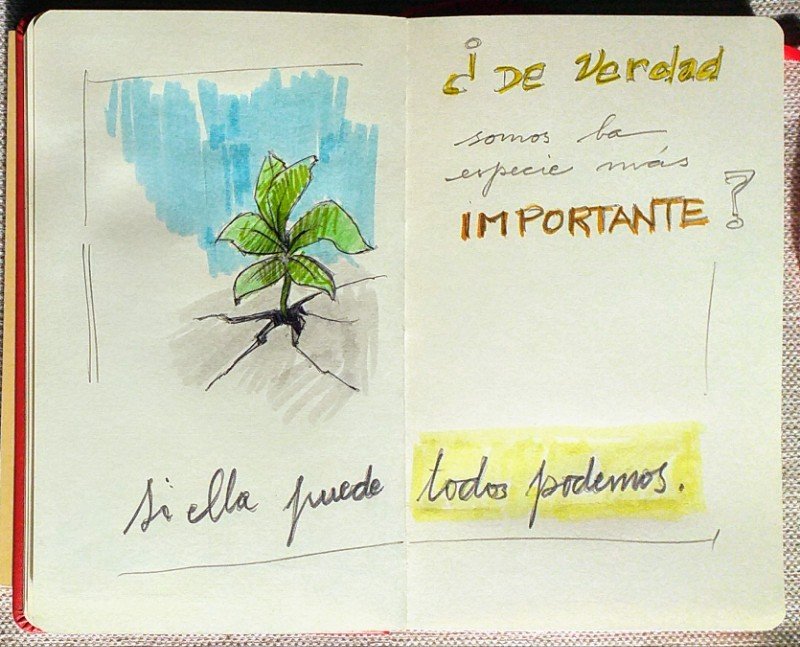 ¿DE Verdad
somos la
especie más
IMPORTANTE?
si ella puede todos podemos.